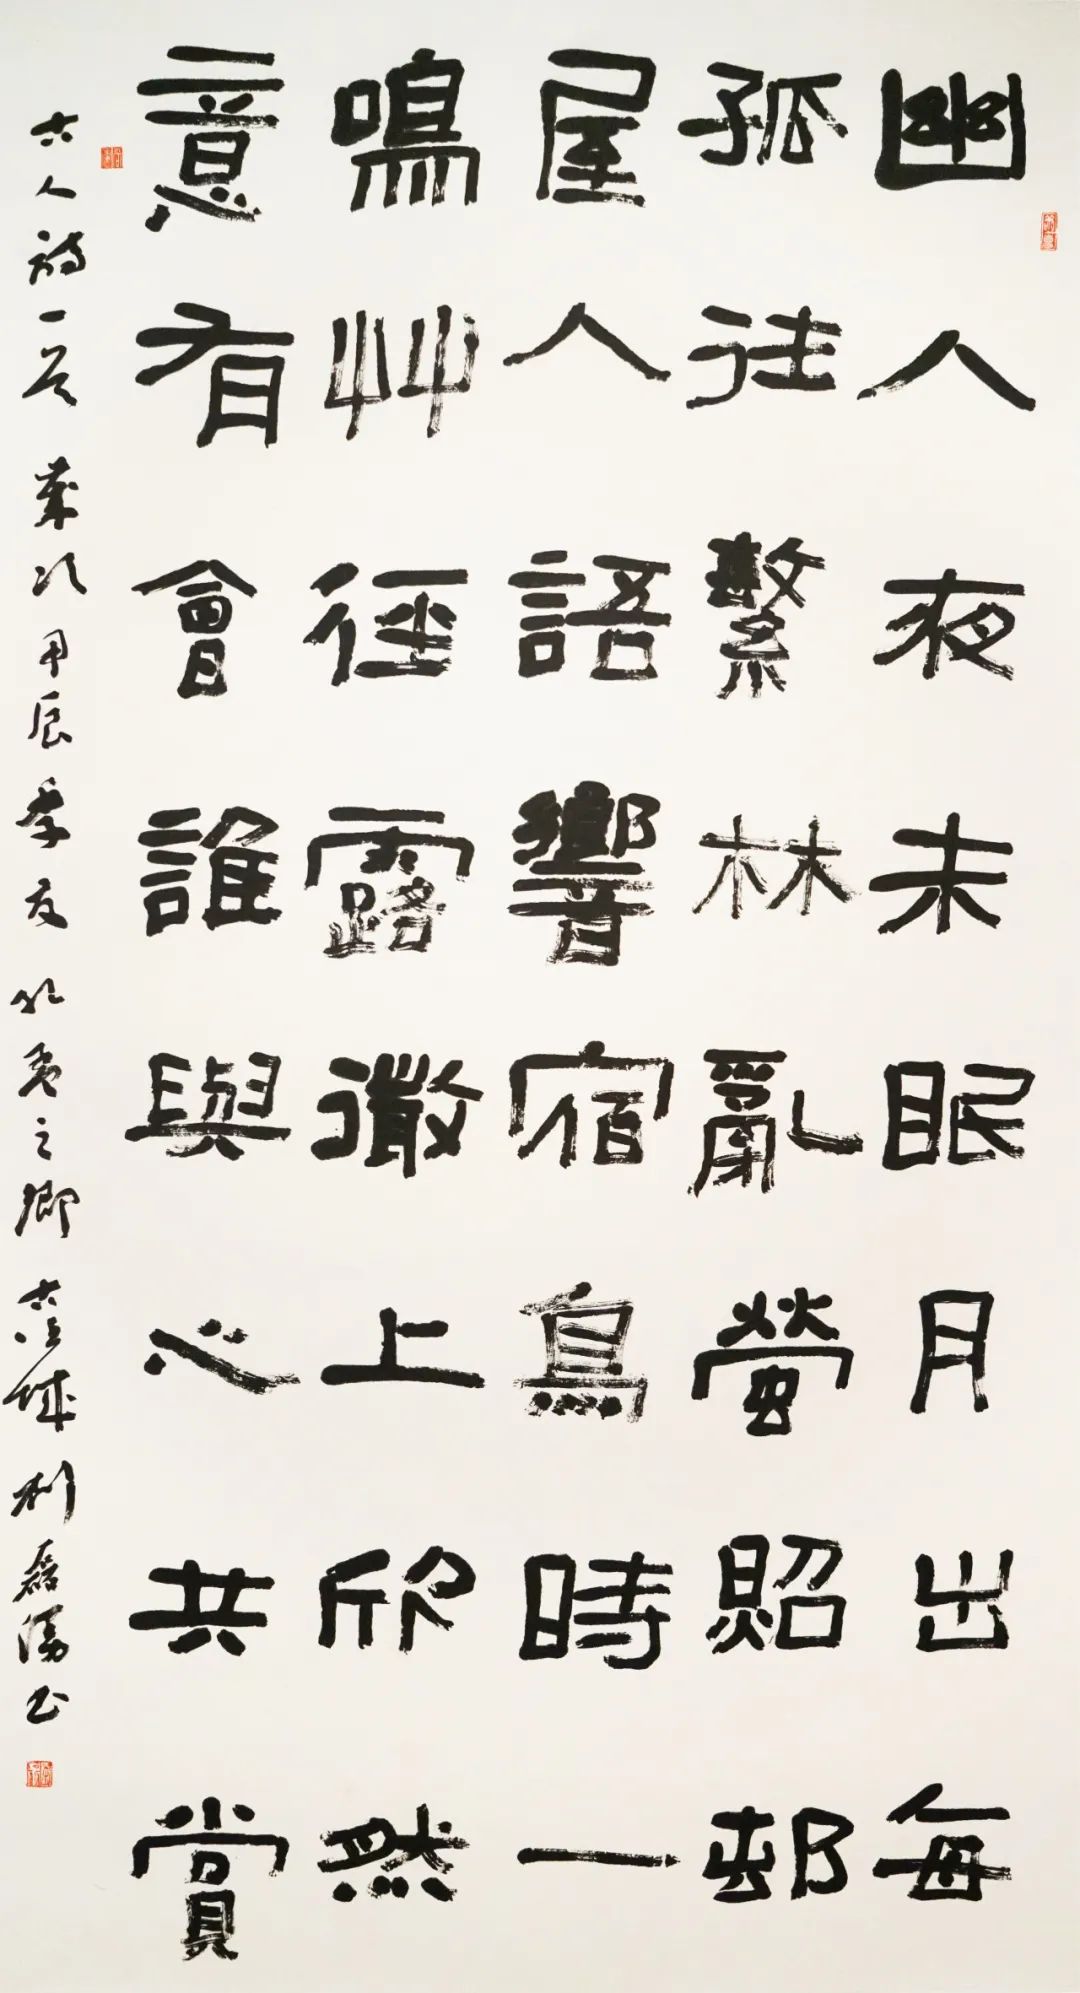 幽人夜未眠月出每
孤往繁林亂螢照邨
屋人語響宿鳥時一
鳴艸徑露微上欣然
意有會誰與心共賞
古人詩一首 歲次甲辰季夏於堯之鄉古唐城利磊湧書